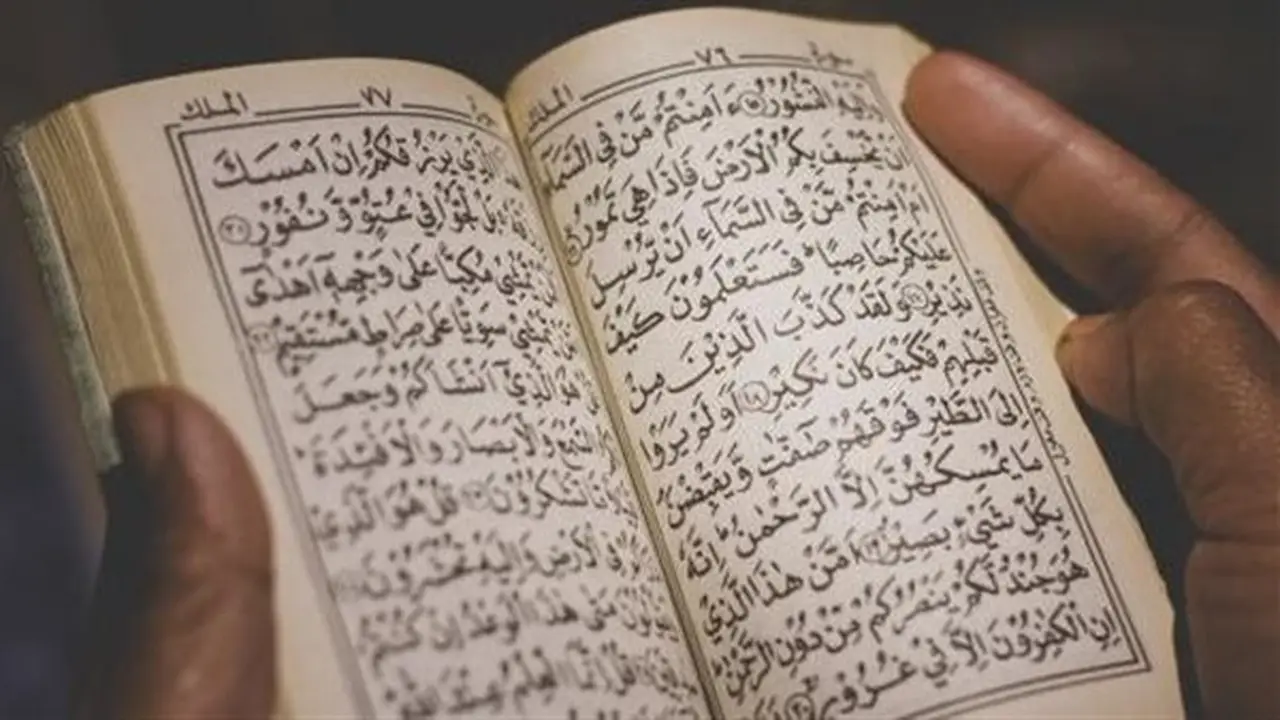 الملك ٧٦ سورة
وَاِلَيۡهِ النُّشُوۡرُ ﴿١٥﴾ ءَاَمِنۡتُمۡ مَّنۡ فِى السَّمَآءِ
اَنۡ يَّخۡسِفَ بِكُمُ الۡاَرۡضَ فَاِذَا هِىَ تَمُوۡرُ
اَمۡ اَمِنۡتُمۡ مَّنۡ فِى السَّمَآءِ اَنۡ يُّرۡسِلَ
عَلَيۡكُمۡ حَاصِبًا ؕ فَسَتَعۡلَمُوۡنَ كَيۡفَ
نَذِيۡرِ ﴿١٧﴾ وَلَقَدۡ كَذَّبَ الَّذِيۡنَ مِنۡ
قَبۡلِهِمۡ فَكَيۡفَ كَانَ نَكِيۡرِ ﴿١٨﴾ اَوَلَمۡ يَرَوۡا
اِلَى الطَّيۡرِ فَوۡقَهُمۡ صٰٓفّٰتٍ وَّيَقۡبِضۡنَ
مَا يُمۡسِكُهُنَّ اِلَّا الرَّحۡمٰنُ ؕ اِنَّهٗ
بِكُلِّ شَىۡءٍۢ بَصِيۡرٌ ﴿١٩﴾ اَمَّنۡ هٰذَا الَّذِىۡ
هُوَ جُنۡدٌ لَّكُمۡ يَنۡصُرُكُمۡ مِّنۡ دُوۡنِ الرَّحۡمٰنِ
اِنِ الۡكٰفِرُوۡنَ اِلَّا فِىۡ غُرُوۡرٍ ﴿٢٠﴾
الملك ٧٧
الَّذِىۡ يَرۡزُقُكُمۡ اِنۡ اَمۡسَكَ
بَلۡ لَّجُّوۡا فِىۡ عُتُوٍّ وَّنُفُوۡرٍ ﴿٢١﴾
يَّمۡشِىۡ مُكِبًّا عَلٰى وَجۡهِهٖۤ اَهۡدٰٓى
يَّمۡشِىۡ سَوِيًّا عَلٰى صِرَاطٍ مُّسۡتَقِيۡمٍ ﴿٢٢﴾
هُوَ الَّذِىۡۤ اَنۡشَاَكُمۡ وَجَعَلَ
السَّمۡعَ وَالۡاَبۡصَارَ وَالۡاَفۡـِٕدَةَ ؕ
مَّا تَشۡكُرُوۡنَ ﴿٢٣﴾ قُلۡ هُوَ الَّذِىۡ
الۡاَرۡضِ وَاِلَيۡهِ تُحۡشَرُوۡنَ
مَتٰى هٰذَا الۡوَعۡدُ اِنۡ كُنۡتُمۡ
قُلۡ اِنَّمَا الۡعِلۡمُ عِنۡدَ اللّٰهِ